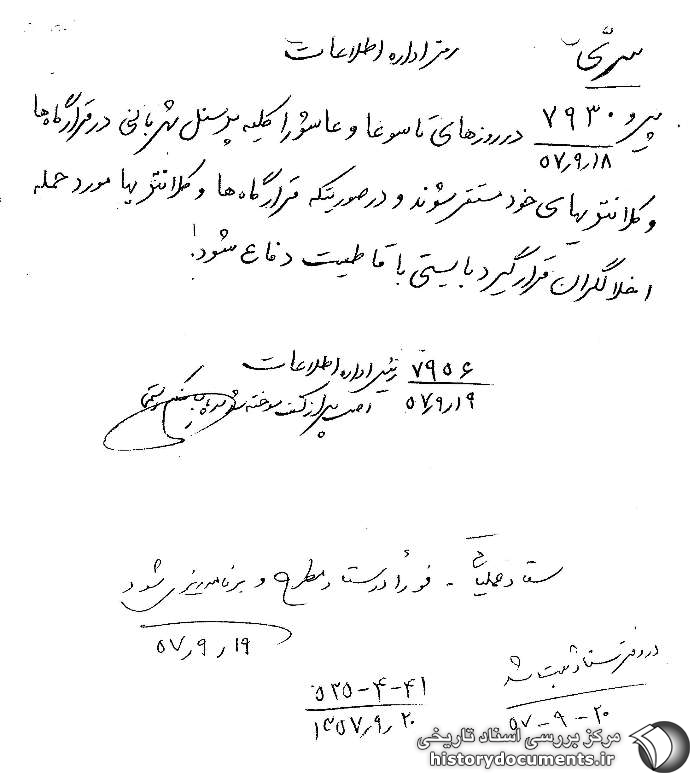 سرّی
رمز اداره اطلاعات
پیرو ۷۹۳۰ در روزهای تاسوعا و عاشورا کلیه پرسنل شهربانی در قرارگاه‌ها
۵۷٫۹٫۱۸
و کلانتریهای خود مستقر شوند و در صورتیکه قرارگاه‌ها و کلانتریها مورد حمله
اخلالگران قرار گیرد بایستی با قاطعیت دفاع شود.
۷۹۵۶ رئیس اداره اطلاعات
۵۷٫۹٫۱۹ اصل پس از کشف سوخته شد
ستاد عملیاتی - فوراً در ستاد مطرح و برنامه‌ریزی شود
۵۷٫۹٫۱۹
در دفتر ستاد ثبت شد
۵۷-۹-۲۰
۵۲۵-۴-۴۱
۱۳۵۷٫۹٫۲۰
مرکز بررسی اسناد تاریخی
historydocuments.ir